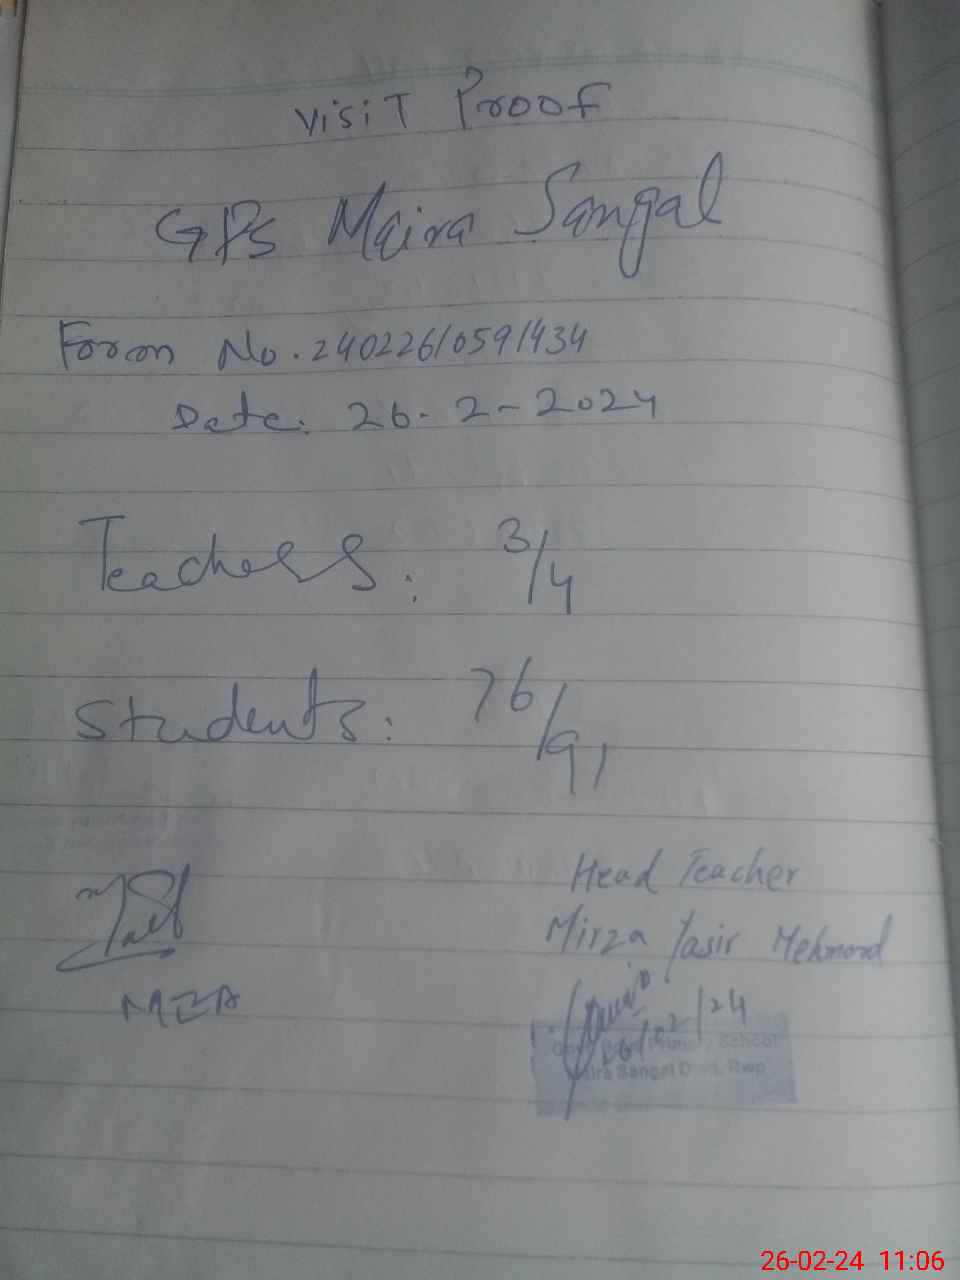 Visit Proof
GPS Maira Sangal
Form No. 24022610591434
Date: 26-2-2024
Teachers: 3/4
Students: 76/91
MEA
Head Teacher
Mirza Yasir Mehmood
26/02/24
Primary School
Maira Sangal Distt. Rwp
26-02-24 11:06